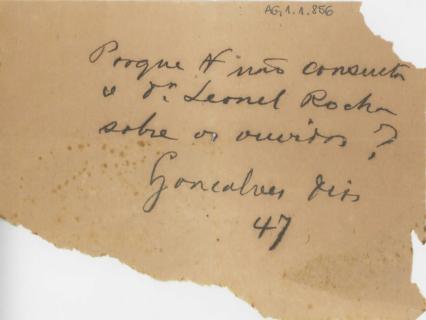 AG.1.1.856
Porque não consulta
o Dr. Leonel Rocha
sobre os ouvidos?
Goncalves Dias
47